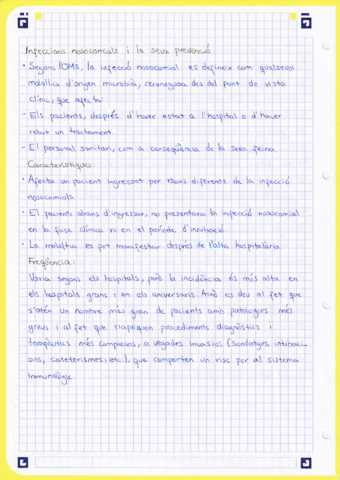 Infeccions nosocomials i la seva prevenció
· Segons l'OMS, la infecció nosocomial es defineix com qualsevol
malaltia d'origen microbià, reconeguda des del punt de vista
clínic, que afecta:
- Els pacients, després d'haver estat a l'hospital o d'haver
rebut un tractament.
- El personal sanitari, com a conseqüència de la seva feina.
Característiques:
· Afecta un pacient ingressat per raons diferents de la infecció
nosocomials.
· El pacient, abans d'ingressar, no presentava la infecció nosocomial
en la fase clínica ni en el període d'incubació.
· La malaltia es pot manifestar després de l'alta hospitalària.
Freqüència:
Varia segons els hospitals, però la incidència és més alta en
els hospitals grans i en els universitaris. Això es deu al fet que
s'atén un nombre més gran de pacients amb patologies més
greus i al fet que s'apliquen procediments diagnòstics i
terapèutics més complexos, a vegades invasius (sondatges, intubaci-
ons, cateterismes, etc.), que comporten un risc per al sistema
immunològic.